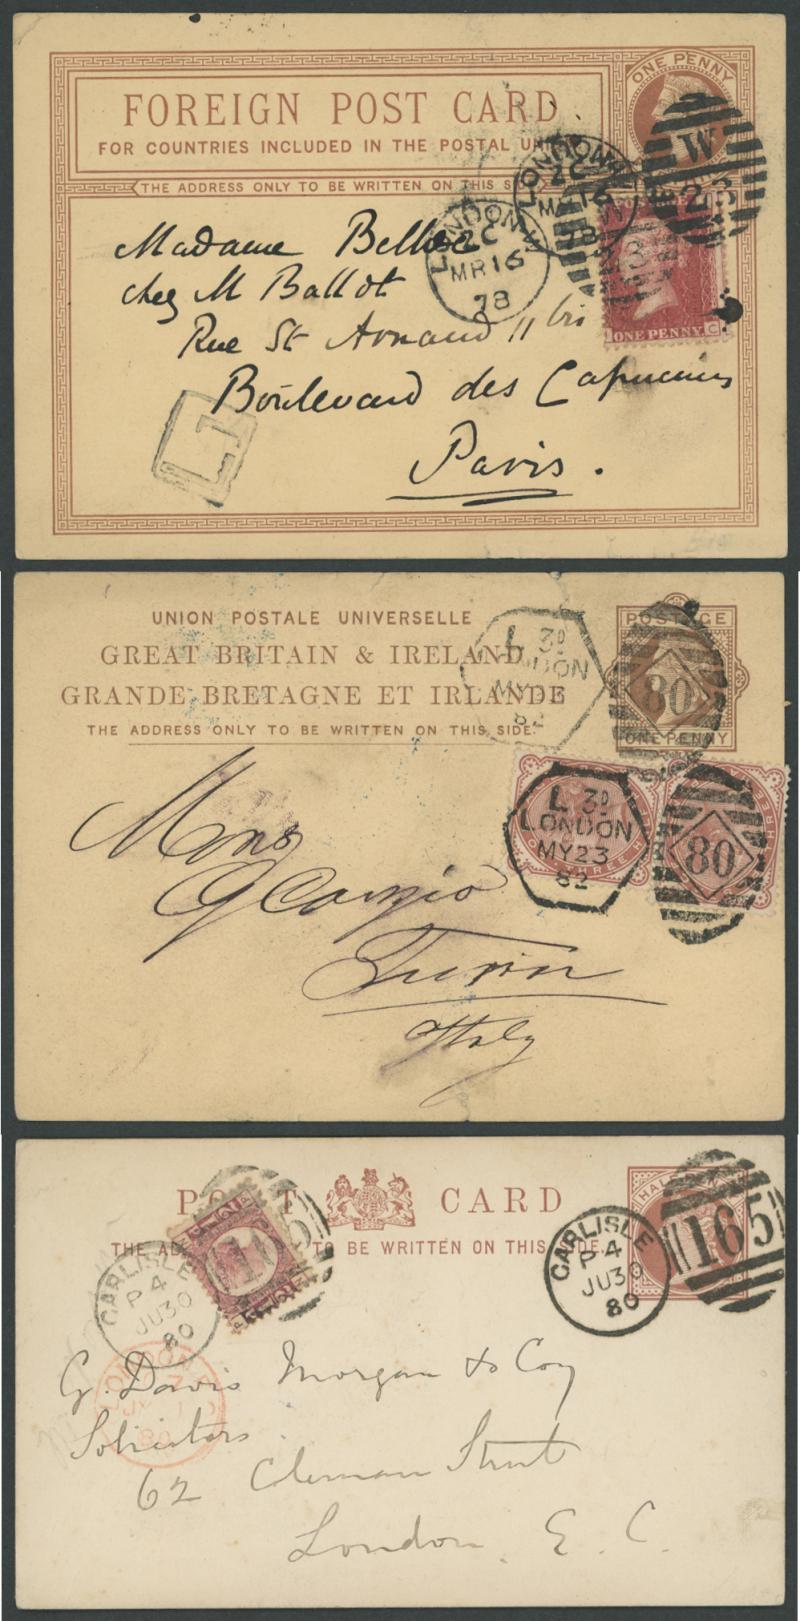 ONE PENNY
FOREIGN POST CARD
FOR COUNTRIES INCLUDED IN THE POSTAL UNI
THE ADDRESS ONLY TO BE WRITTEN ON THIS SIDE
W
23
LONDON·W
2C
MR16
78
LONDON·W
C
MR16
78
Madame
chez M Ballot
Rue St Arnaud 11 bis
Boulevard des Capucines
Paris.
ONE PENNY
C
T
UNION POSTALE UNIVERSELLE
GREAT BRITAIN & IRELAND
GRANDE BRETAGNE ET IRLANDE
THE ADDRESS ONLY TO BE WRITTEN ON THIS SIDE
POSTAGE
ONE PENNY
80
L 3D
LONDON
MY23
82
L 3D
LONDON
MY23
82
80
Mons
Turin
Italy
POST CARD
THE AD TO BE WRITTEN ON THIS SIDE.
HALF
165
CARLISLE
P4
JU30
80
165
CARLISLE
P4
JU30
80
LONDON
80
G. Davis Morgan & Coy
Solicitors
62 Coleman Street
London. E. C.